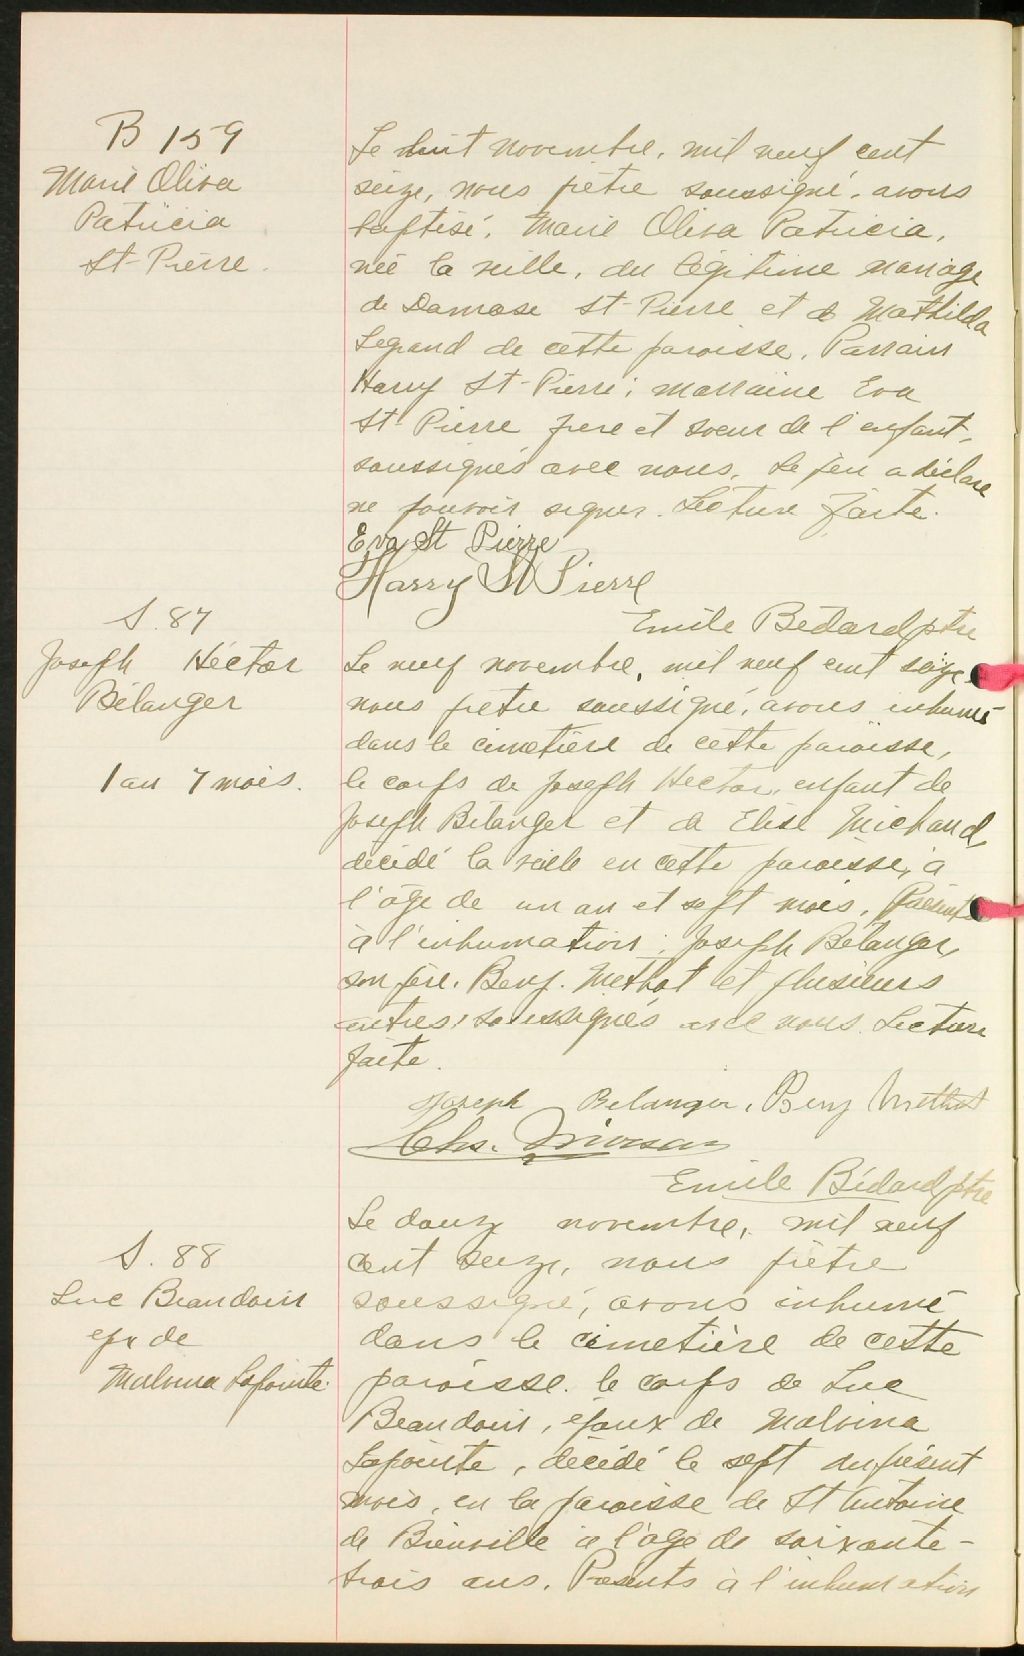 B 159
Marie Oliva
Patricia
St-Pierre.
Le huit novembre, mil neuf cent
seize, nous prêtre soussigné, avons
baptisé, Marie Oliva Patricia,
née la veille, du légitime mariage
de Damase St-Pierre et de Mathilda
Legrand de cette paroisse. Parrain
Harry St-Pierre; marraine Eva
St-Pierre frere et soeur de l'enfant,
soussignés avec nous. Le père a déclaré
ne pouvoir signer. Lecture faite.
Eva St Pierre
Harry St Pierre
Emile Bédard ptre
S. 87
Joseph Hector
Bélanger
1 an 7 mois.
Le neuf novembre, mil neuf cent seize
nous prêtre soussigné, avons inhumé
dans le cimetière de cette paroisse,
le corps de Joseph Hector, enfant de
Joseph Bélanger et de Elise Michaud,
décédé la veille en cette paroisse, à
l'âge de un an et sept mois. Présents
à l'inhumation: Joseph Bélanger,
son père. Benj. Methot et plusieurs
autres, soussignés avec nous. Lecture
faite.
Joseph Belanger, Benj Methot
Chs.
Emile Bédard ptre
S. 88
Luc Beaudoin
epx de
Malvina Lapointe
Le douze novembre, mil neuf
cent seize, nous prêtre
soussigné, avons inhumé
dans le cimetière de cette
paroisse. le corps de Luc
Beaudoin, époux de Malvina
Lapointe, décédé le sept du présent
mois, en la paroisse de St Antoine
de Bienville à l'âge de soixante-
trois ans. Présents à l'inhumation